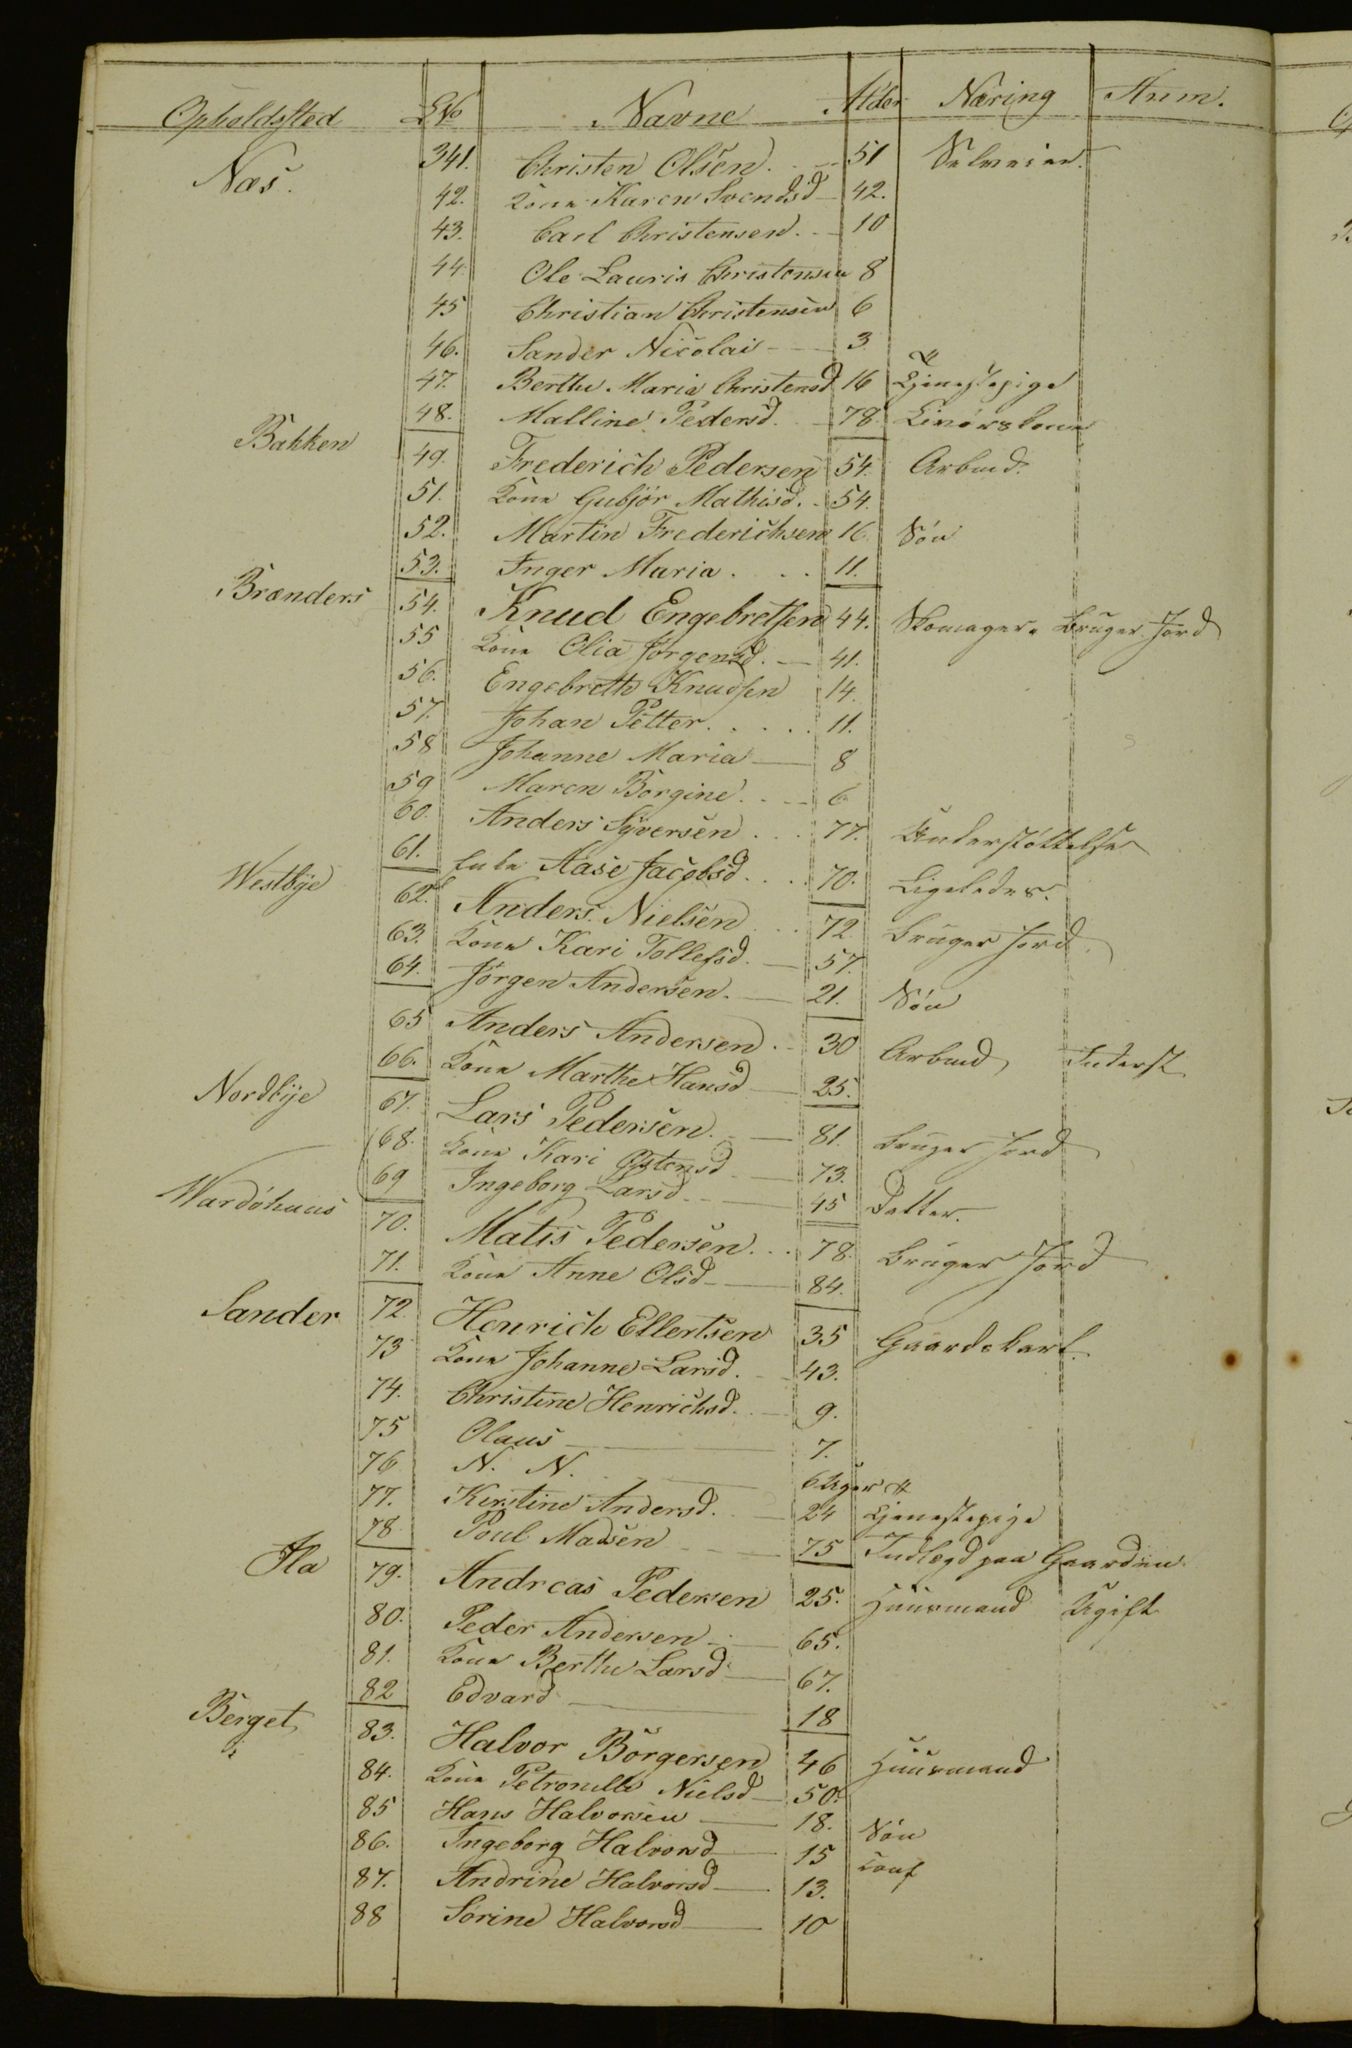 Opholdsted No Navne Alder Næring Anm.
Næs. 341. Christen Olsen. 51 Selveier.
42. Kone Karen Svendsd 42.
43. Carl Christensen. 10
44 Ole Lauris Christensen 8
45 Christian Christensen 6
46. Sander Nicolai 3
47. Berthe Maria Christensd 16 Tjenestepige
48. Malline Pedersd. 78 Livørskone
Bakken 49. Frederich Pedersen 54. Arbmd.
51. Kone Gubjör Mathisd. 54.
52. Martin Frederichsen 16. Sön
53. Inger Maria . . . 11.
Brænders 54. Knud Engebretsen 44. Skomager. Bruger Jord
55 Kone Olia Jörgensd. 41.
56. Engebreth Knudsen 14.
57. Johan Petter. . . . . 11.
58 Johanne Maria 8
59 Maren Borgine. 6
60. Anders Syversen . . . 77. Understøttelse
61. Enke Aase Jacobsd. . . . 70. Ligeledes.
Westbye 62. Anders Nielsen . . . 72 Bruger Jord.
63. Kone Kari Tollefsd. 57.
64. Jörgen Andersen. 21. Sön
65 Anders Andersen. 30 Arbmd, Inderst
66. Kone Marthe Hansd 25.
Nordbye 67. Lars Pedersen. 81. Bruger Jord
68. Kone Kari Ostensd 73.
69 Ingeborg Larsd. 45 Datter.
Wardöhuus 70. Matis Pedersen. . . 78. Bruger Jord
71. Kone Anne Olsd 84.
Sander 72 Henrich Ellertsen 35 Gaardskarl.
73 Kone Johanne Larsd. 43.
74. Christine Henrichsd. 9.
75 Olaus 7.
76 N. N. 6 Uger
77. Kirstine Andersd. 24 Tjenestepige
78 Poul Madsen 75 Indlagd paa Gaarden
Ila 79. Andreas Pedersen 25. Huusmand Ugift
80. Peder Andersen 65.
81. Kone Berthe Larsd 67.
82 Edvard 18
Berget 83. Halvor Börgersen 46 Huusmand
84. Kone Petronelle Nielsd 50.
85 Hans Halvorsen 18. Sön
86. Ingeborg Halvorsd 15 Conf
87. Andrine Halvorsd 13.
88 Sorine Halvorsd 10